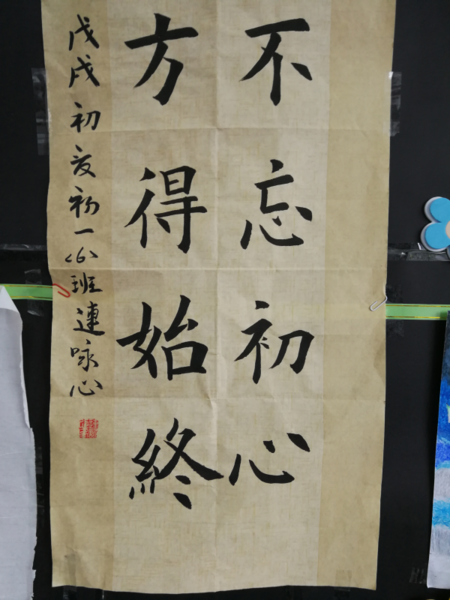 不忘初心
方得始終
戊戌初夏初一(6)班連咏心